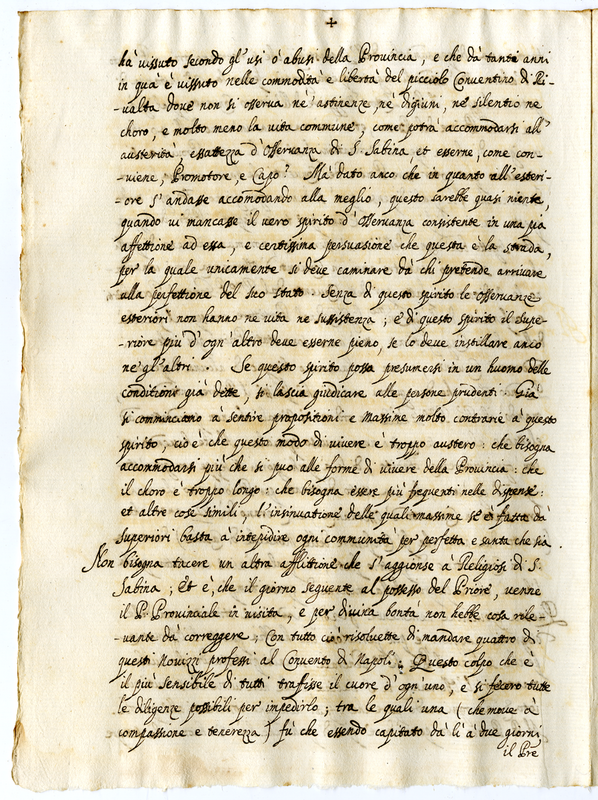 +
hà vissuto secondo gl'usi ò abusi della Provincia, e che dà tanti anni
in quà è vissuto nelle commodità e libertà del picciolo Conventino di Ri-
-valta dove non si osserva ne astinenze, ne digiuni, ne silentio ne
choro, e molto meno la vita commune, come potrà accommodarsi all'
austerità, essattezza d'Osservanza di S. Sabina et esserne, come con-
-viene, Promotore, e Capo? Mà dato anco che in quanto all'esteri-
-ore s'andasse accomodando alla meglio, questo sarebbe quasi niente,
quando vi mancasse il vero spirito d'Osservanza consistente in una pia
affettione ad essa, e certissima persuasione che questa è la strada,
per la quale unicamente si deve caminare dà chi pretende arrivare
alla perfettione del suo stato. Senza di questo spirito le Osservanze
esteriori non hanno ne vita ne sussistenza; e di questo spirito il Supe-
-riore più d'ogn'altro deve esserne pieno, se lo deve instillare anco
ne gl'altri. Se questo spirito possa presumersi in un huomo delle
conditioni già dette, si lascia giudicare alle persone prudenti. Già
si comminciano à sentire propositioni e massime molto contrarie à questo
spirito, cio è che questo modo di vivere è troppo austero: che bisogna
accommodarsi più che si può alle forme di vivere della Provincia: che
il choro è troppo longo: che bisogna essere più frequenti nelle dispense:
et altre cose simili, l'insinuatione delle quali massime se è fatta dà
superiori basta à intepidire ogni communità per perfetta e santa che sia.
Non bisogna tacere un altra afflittione che s'aggionse à Religiosi di S.
Sabina; Et è, che il giorno seguente al possesso del Priore, venne
il P. Provinciale in visita, e per divina bontà non hebbe cosa rile-
-vante dà correggere; Con tutto ciò risolvette di mandare quattro di
questi Novizzi professi al Convento di Napoli. Questo colpo che è
il più sensibile di tutti traffisse il cuore d'ogn'uno, e si fecero tutte
le diligenze possibili per impedirlo; tra le quali una (che move à
compassione e tenerezza) fù che essendo capitato dà lì à due giorni
il Pre